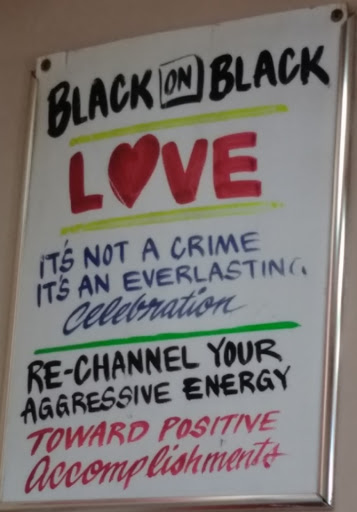 BLACK ON BLACK
LOVE
IT'S NOT A CRIME
IT'S AN EVERLASTING
Celebration
RE-CHANNEL YOUR
AGGRESSIVE ENERGY
TOWARD POSITIVE
Accomplishments